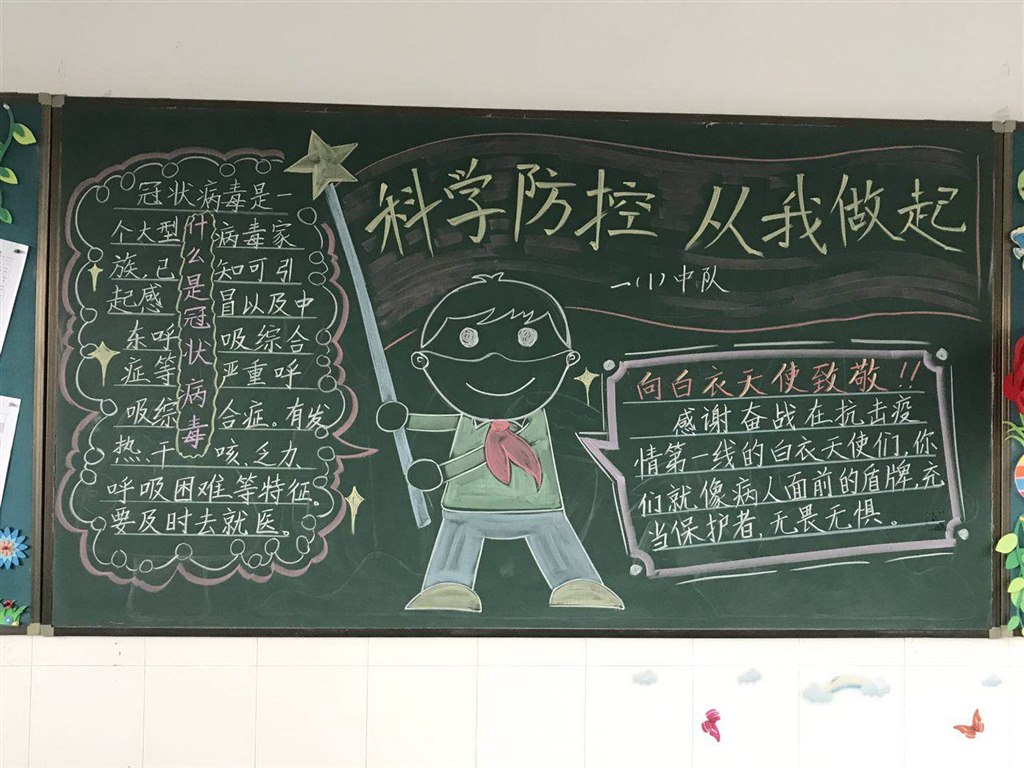 科学防控 从我做起
一(1)中队
什么是冠状病毒
冠状病毒是一
个大型病毒家
族,已知可引
起感冒以及中
东呼吸综合
症等严重呼
吸综合症。有发
热、干咳、乏力、
呼吸困难等特征,
要及时去就医。
向白衣天使致敬!!
感谢奋战在抗击疫
情第一线的白衣天使们,你
们就像病人面前的盾牌,充
当保护者,无畏无惧。